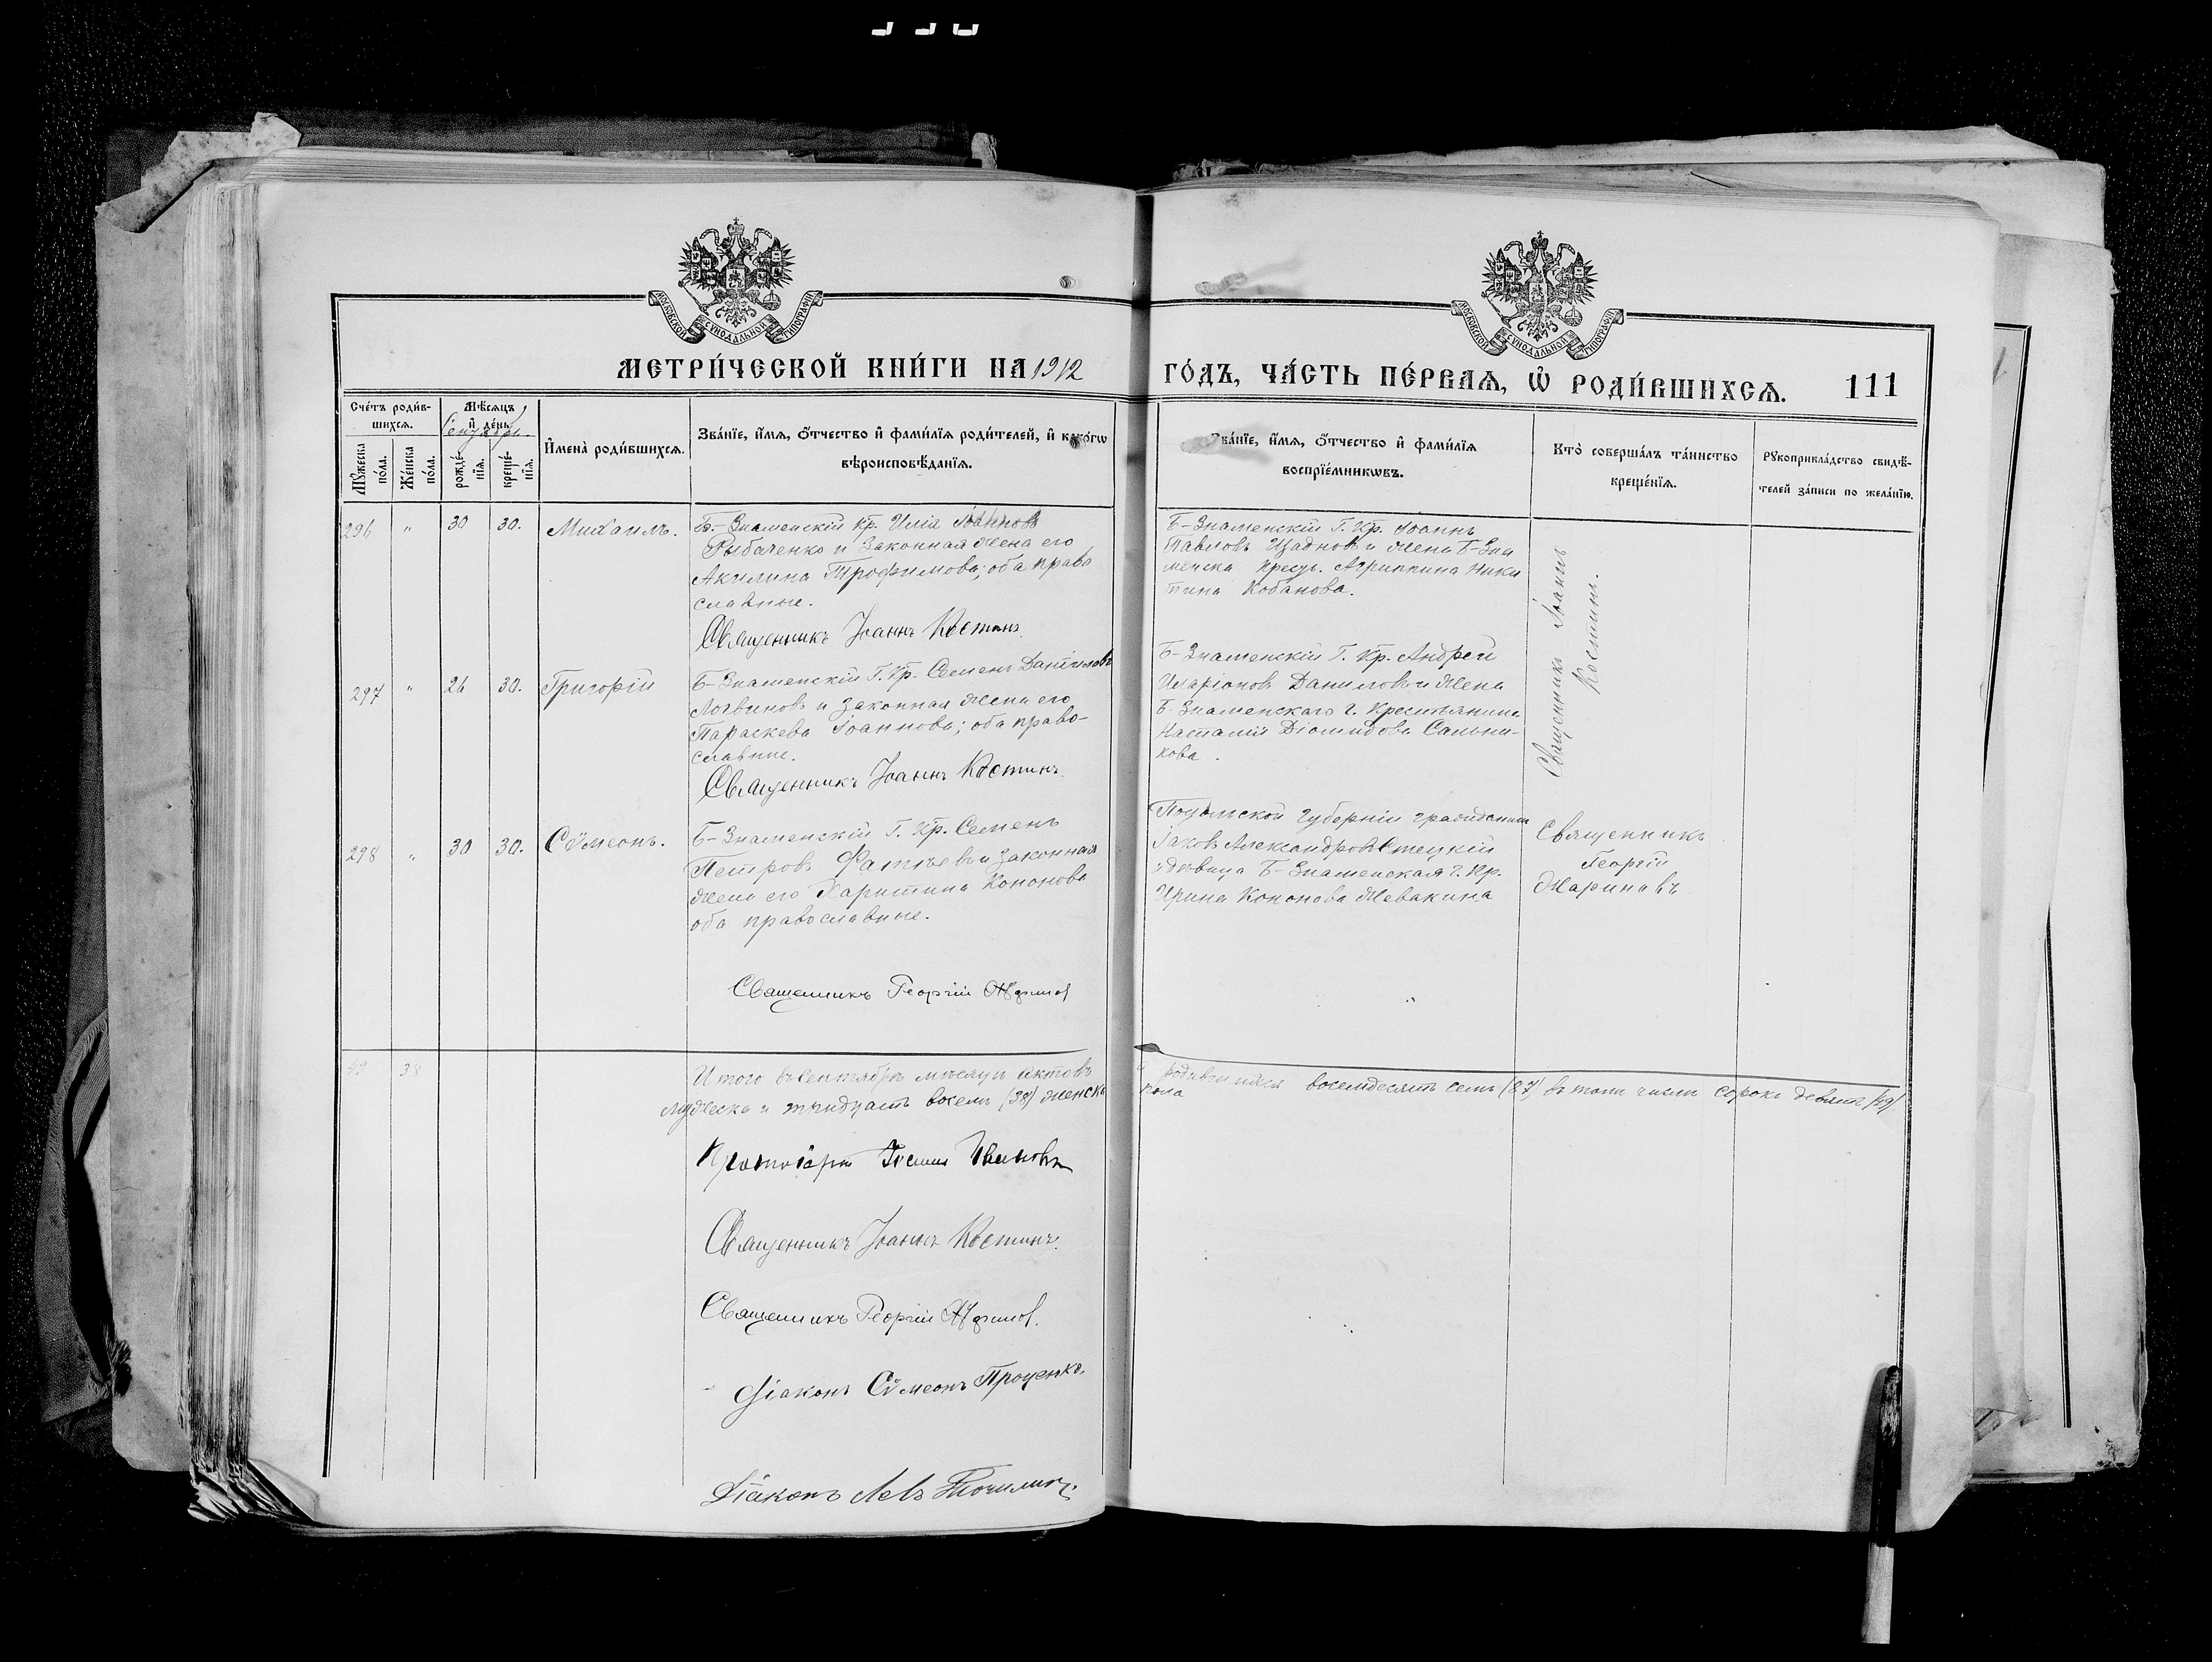 МОСКОВСКОЙ СѴНОДАЛЬНОЙ ТИПОГРАФІИ
МОСКОВСКОЙ СѴНОДАЛЬНОЙ ТИПОГРАФІИ
МЕТРИ́ЧЕСКОЙ КНИ́ГИ НА 1912
ГО́ДЪ, ЧА́СТЬ ПЕ́РВАѦ, Ѡ҆ РОДИ́ВШИХСѦ.
111
Сче́тъ роди́в-
шихсѧ.
Мѣ́сѧцъ
и҆ де́нь.
Сентябрь.
Мꙋ́жеска
по́ла.
Же́нска
по́ла.
рожде́-
нїѧ.
креще́-
нїѧ.
И҆мена̀ роди́вшихсѧ.
Зва́нїе, и҆́мѧ, ѻ҆́тчество и҆ фами́лїѧ роди́телей, и҆ како́гѡ
вѣроисповѣ́данїѧ.
Зва́нїе, и҆́мѧ, ѻ҆́тчество и҆ фами́лїѧ
воспрїе́мникѡвъ.
Кто̀ соверша́лъ та́инство
креще́нїѧ.
Рꙋкоприкла́дство свидѣ́-
телей за́писи по жела́нїю.
296 " 30 30. Михаилъ.
Б.-Знаменскій Кр. Илія Іоанновъ
Рыбаченко и законная жена его
Акилина Трофимова; оба право
славные.
Священникъ Іоаннъ Костинъ
Б-Знаменскій Г. Кр. Іоаннъ
Павловъ и жена Б-Зна
менска Агриппина Ники
тина Кобанова.
Священникъ Іоаннъ
Костинъ.
297 " 26 30. Григорій
Б-Знаменскій Г. Кр. Семенъ Даніиловъ
Логвиновъ и законная жена его
Параскева Іоаннова; оба право-
славные.
Священникъ Іоаннъ Костинъ
Б-Знаменскій Г. Кр. Андрей
Иларіоновъ Даниловъ и жена
Б-Знаменскаго г. Крестьянина
Наталія Діомидова Сальни-
кова.
298 " 30 30. Сѵмеонъ.
Б-Знаменскій Г. Кр. Семенъ
Петровъ Фатѣевъ и законная
жена его Харитина Кононова
оба православные.
Священникъ Георгій
Подольской губерніи гражданинъ
Іаковъ Александровъ Стецкій
и дѣвица Б-Знаменская г. Кр.
Ирина Кононова Жевакина
Священникъ
Георгій
49 38
Итого въ Сентябрѣ мѣсяцѣ актовъ
о родившихся восемдесятъ семь (87) въ томъ числѣ сорокъ девять (49)
мужеска и тридцать восемь (38) женска
пола
Протоіерей Ивановъ
Священникъ Іоаннъ Костинъ.
Священникъ Георгій
Діаконъ Сѵмеонъ Проценко.
Діаконъ Левъ